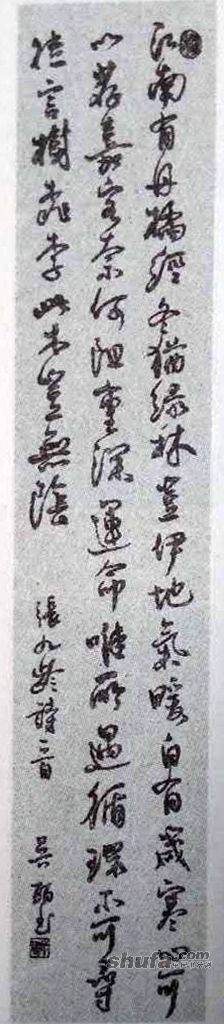 江南有丹橘經冬猶綠林豈伊地氣暖自有歲寒心可
以薦嘉客奈何阻重深運命唯所遇循環不可尋
徒言樹桃李此木豈無陰
張九齡詩一首
吳
shufa.com